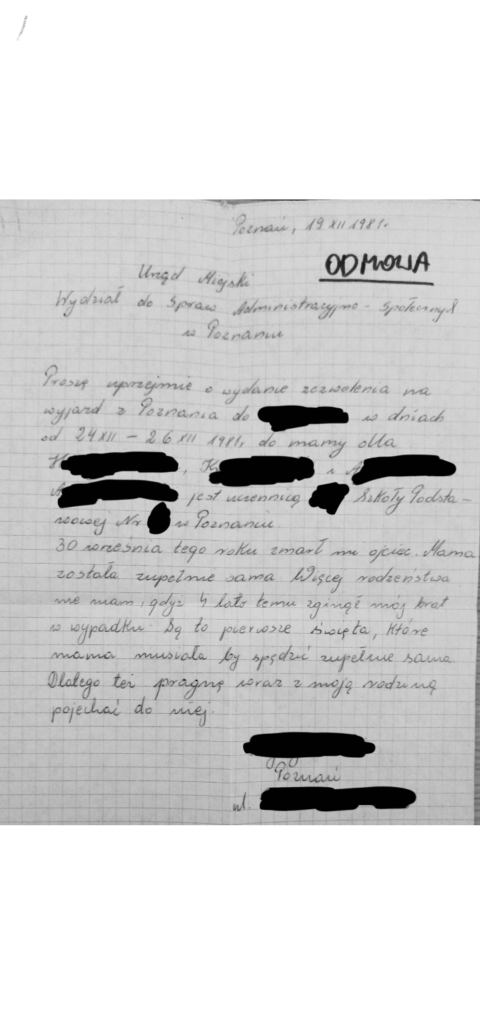 Poznań, 19 XII 1981r.
ODMOWA
Urząd Miejski
Wydział do Spraw Administracyjno - Społecznych
w Poznaniu
Proszę uprzejmie o wydanie zezwolenia na
wyjazd z Poznania do w dniach
od 24 XII - 26 XII 1981r. do mamy dla
H , K i A
A jest uczennicą Szkoły Podsta-
wowej Nr. w Poznaniu
30 września tego roku zmarł mi ojciec. Mama
została zupełnie sama. Więcej rodzeństwa
nie mam, gdyż 4 lata temu zginął mój brat
w wypadku. Są to pierwsze święta, które
mama musiała by spędzić zupełnie sama.
Dlatego też pragnę wraz z moją rodziną
pojechać do niej.
Poznań
ul.